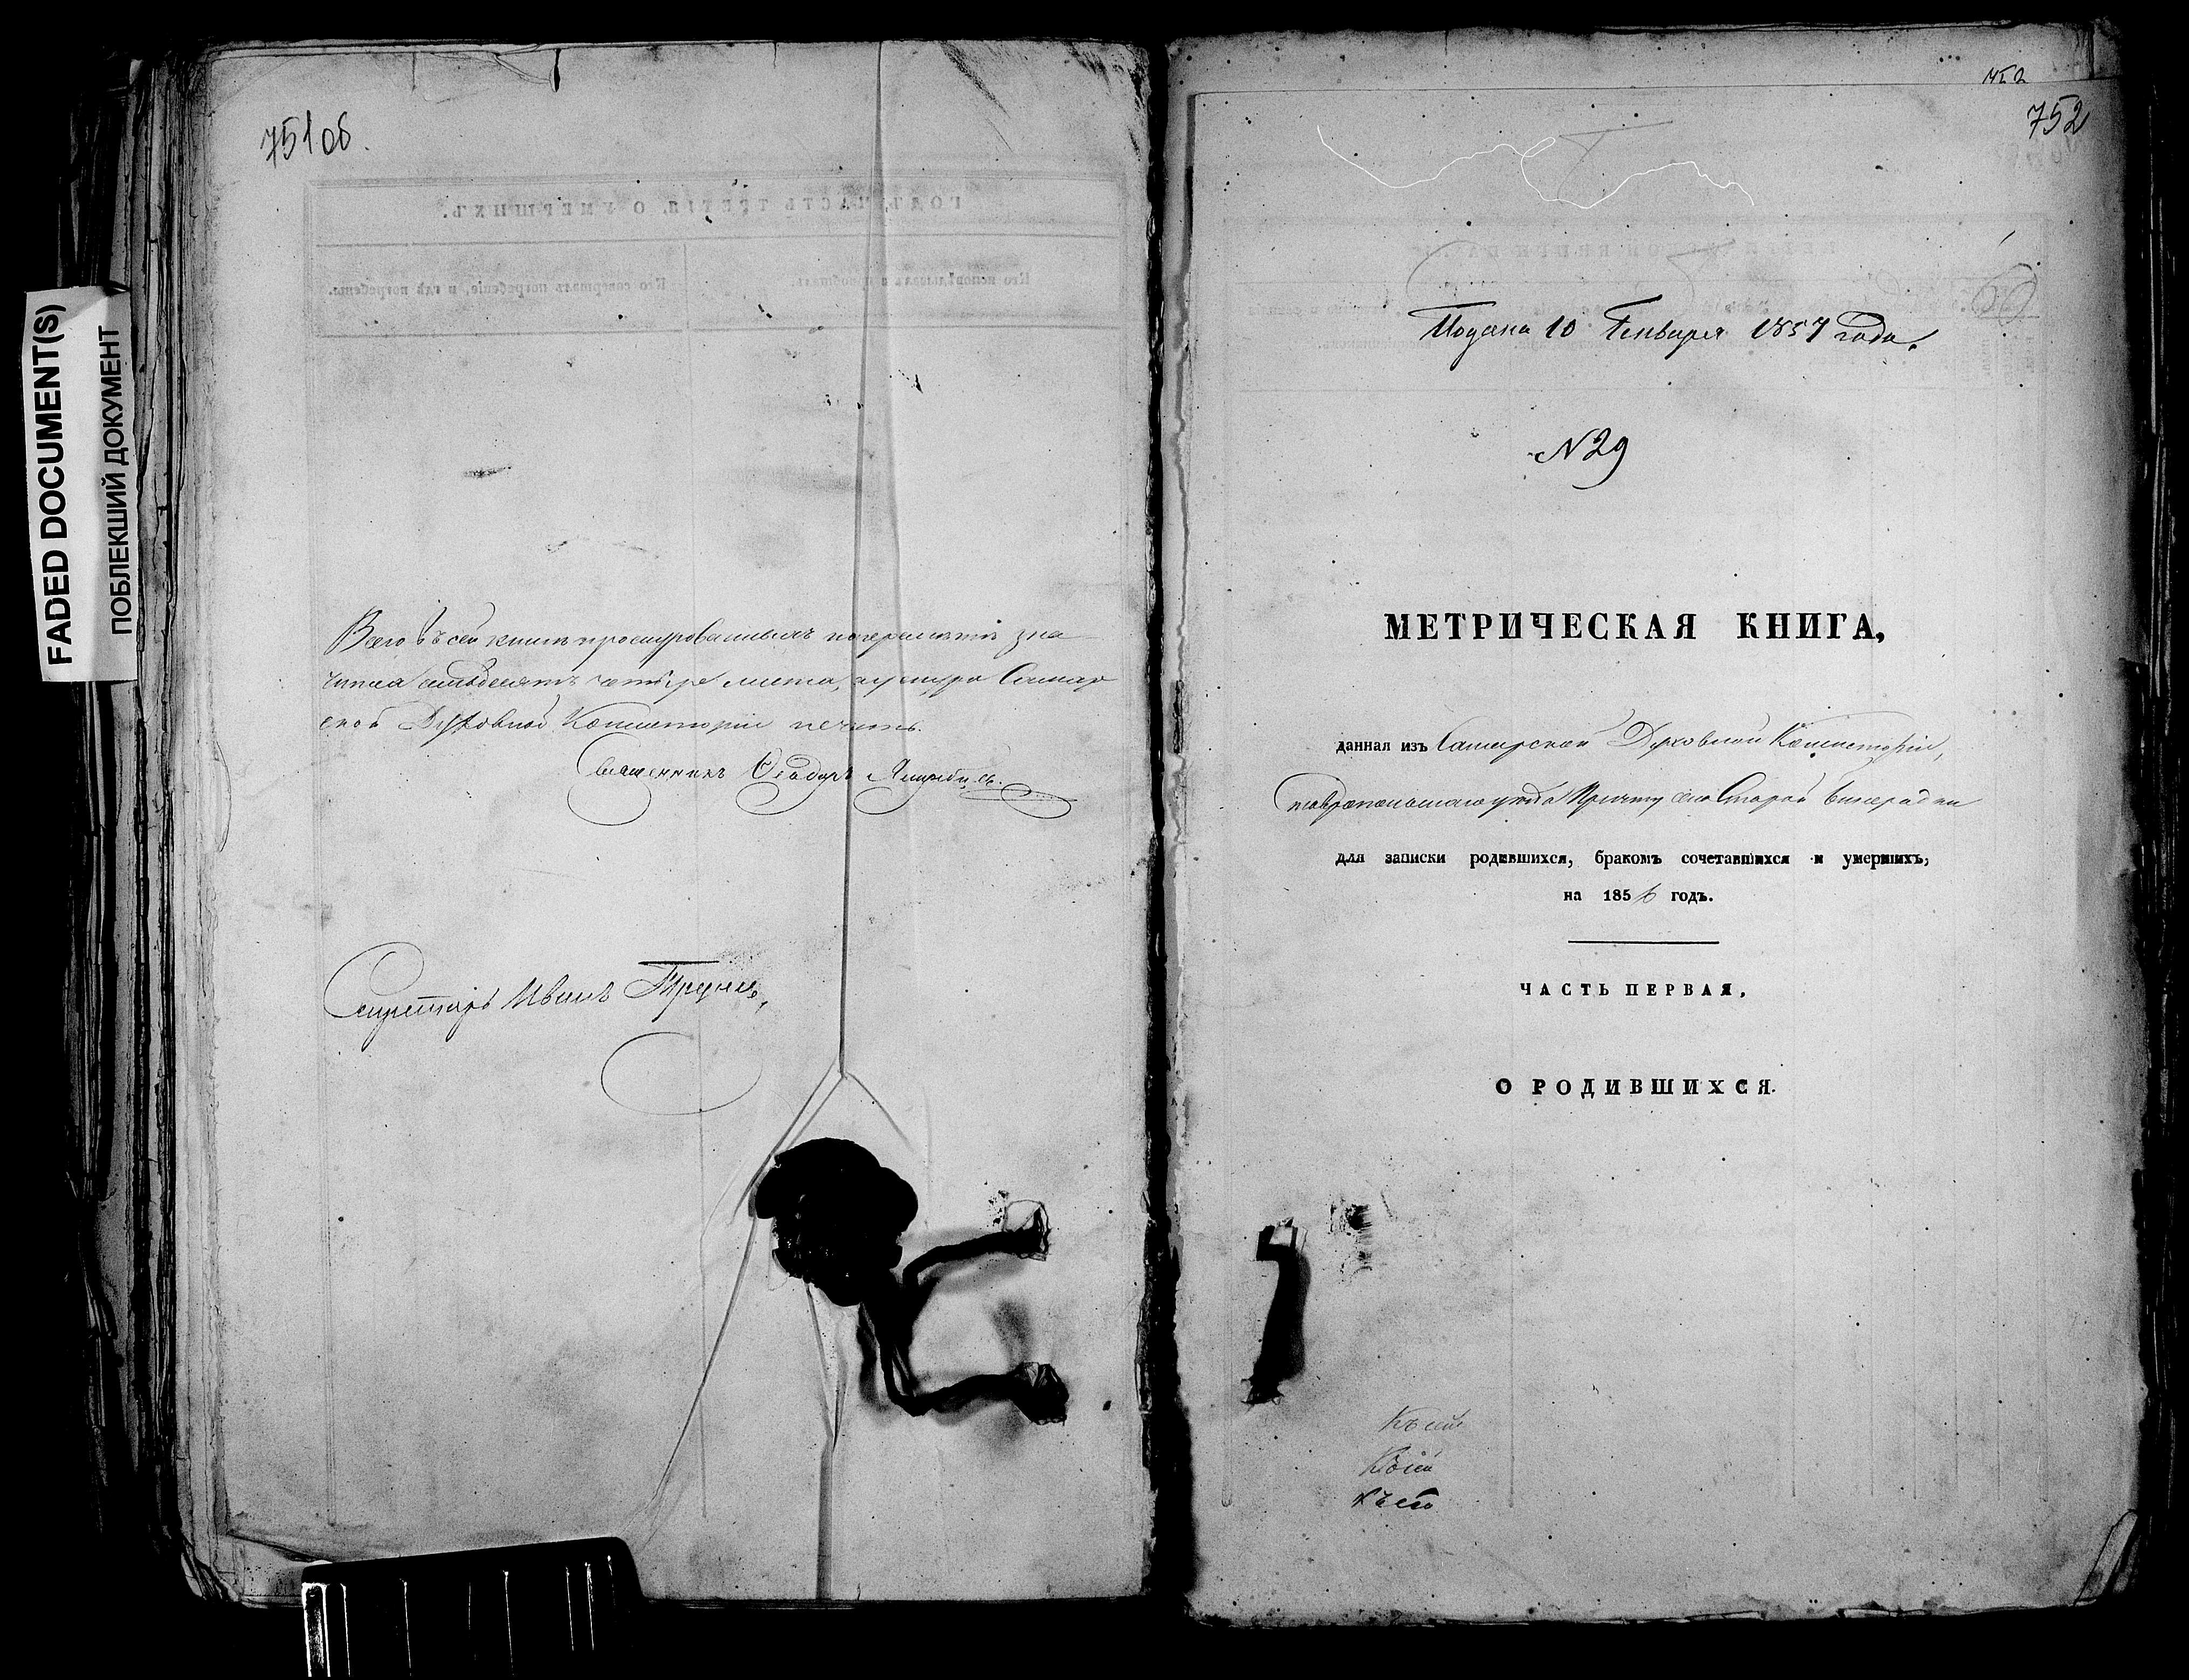 FADED DOCUMENT(S)
ПОБЛЕКШИЙ ДОКУМЕНТ
751об.
ГОДЪ, ЧАСТЬ ТРЕТІЯ, О УМЕРШИХЪ.
Кто исповѣдывалъ и пріобщалъ.
Кто совершалъ погребеніе, и гдѣ погребены.
Всего въ сей книгѣ прошнурованныхъ
четыре листа, Самар
ской Духовной Консисторіи печать.
Священникъ Ѳеодоръ
Секретарь Иванъ
752
752
Подана 10 Генваря 1857 года.
N 29
МЕТРИЧЕСКАЯ КНИГА,
данная изъ Самарской Духовной Консисторіи,
Ставропольскаго уѣзда Причту села Старой Бинарадки
для записки родившихся, бракомъ сочетавшихся и умершихъ,
на 1856 годъ.
ЧАСТЬ ПЕРВАЯ,
О РОДИВШИХСЯ.
Къ сей
Къ сей
Къ сей